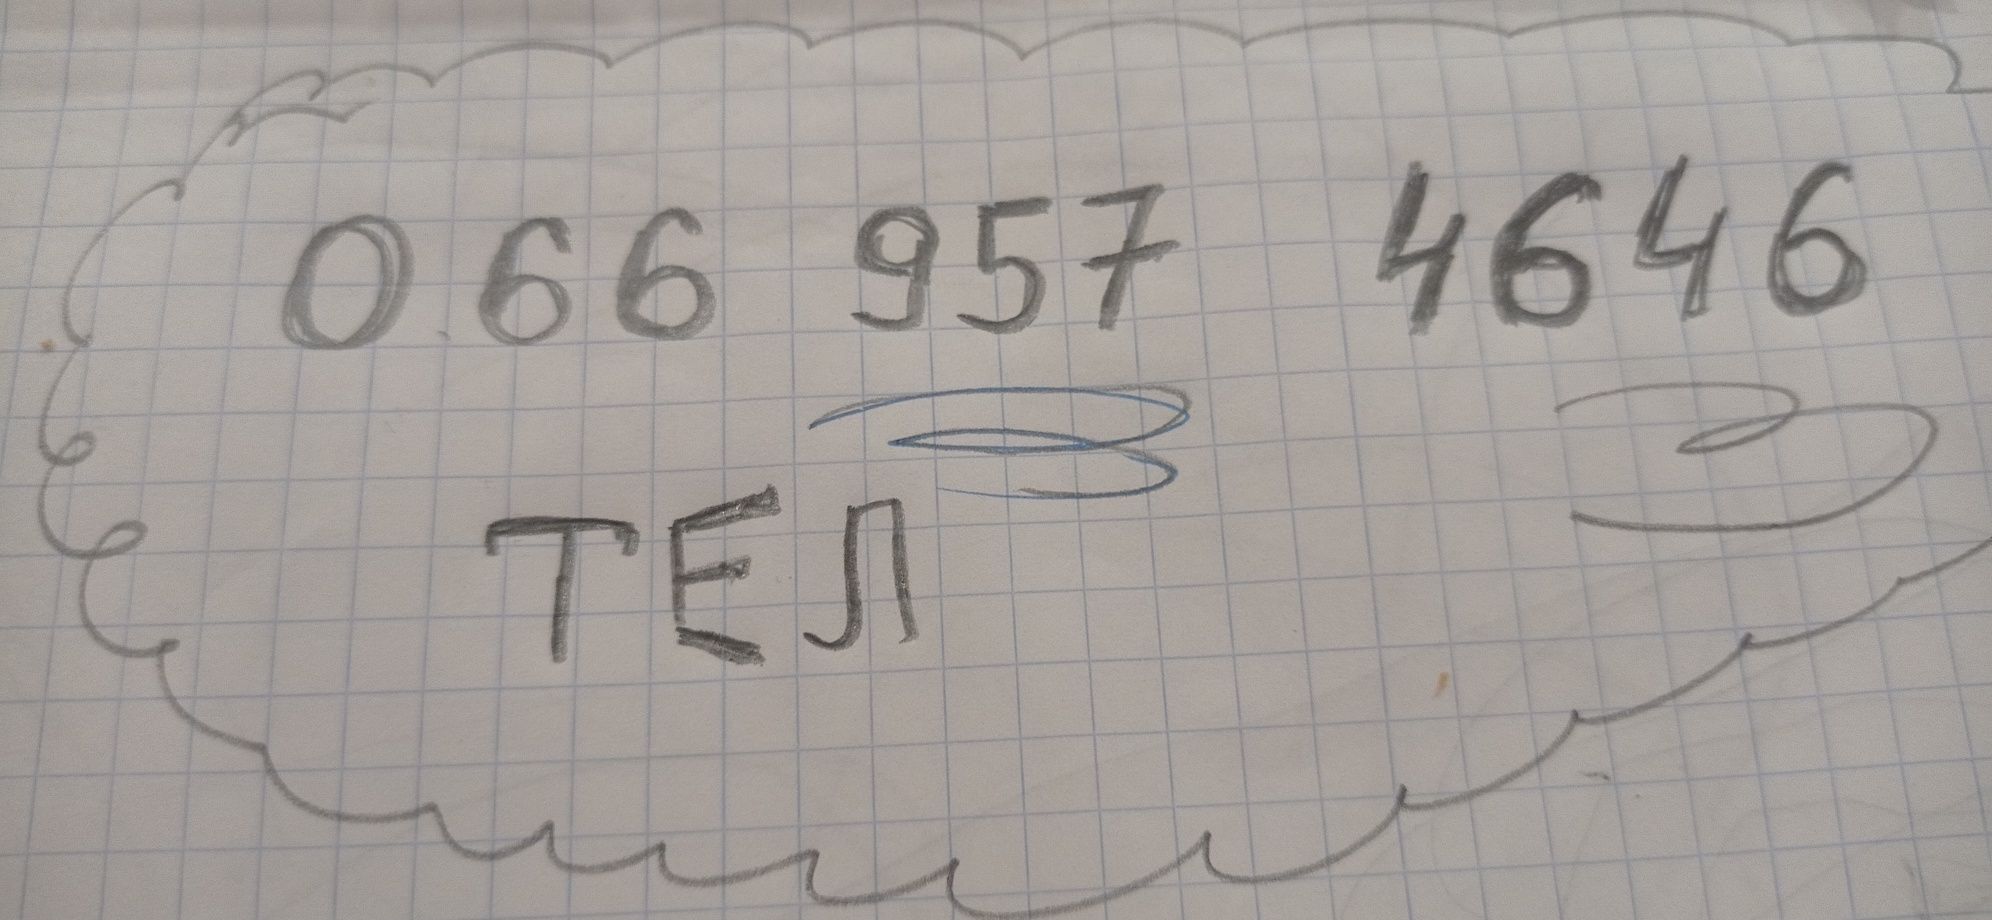 066 957 4646
ТЕЛ